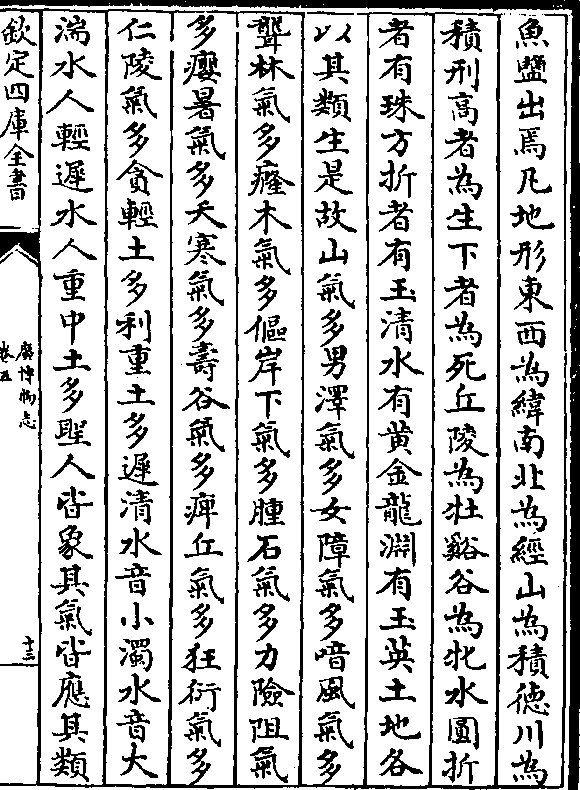 魚鹽出焉凡地形東西為緯南北為經山為積德川為
積刑高者為生下者為死丘陵為牡谿谷為牝水圓折
者有珠方折者有玉清水有黄金龍淵有玉英土地各
以其類生是故山氣多男澤氣多女障氣多喑風氣多
聾林氣多癃木氣多傴岸下氣多腫石氣多力險阻氣
多癭暑氣多夭寒氣多壽谷氣多痺丘氣多狂衍氣多
仁陵氣多貪輕土多利重土多遲清水音小濁水音大
湍水人輕遲水人重中土多聖人皆象其氣皆應其類
欽定四庫全書
廣博物志
卷五
十三